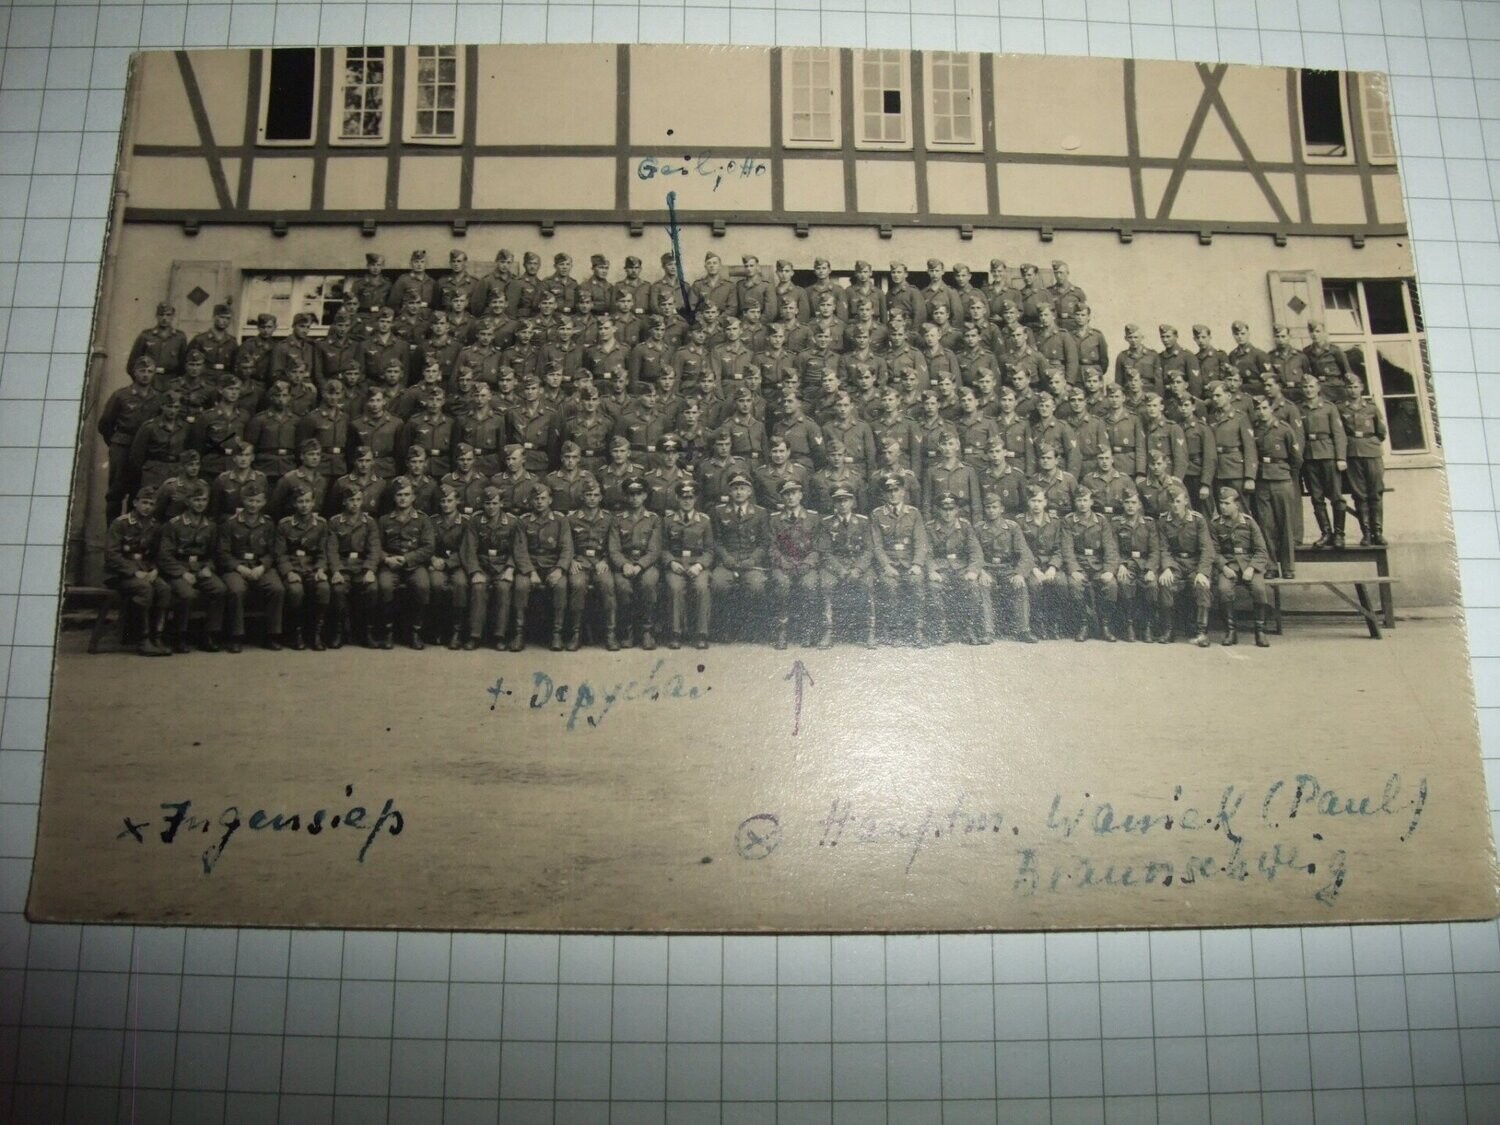 Geil, Otto
+ Depychai
x Ingensiep
ⓧ Hauptm. Waniek (Paul)
Braunschweig